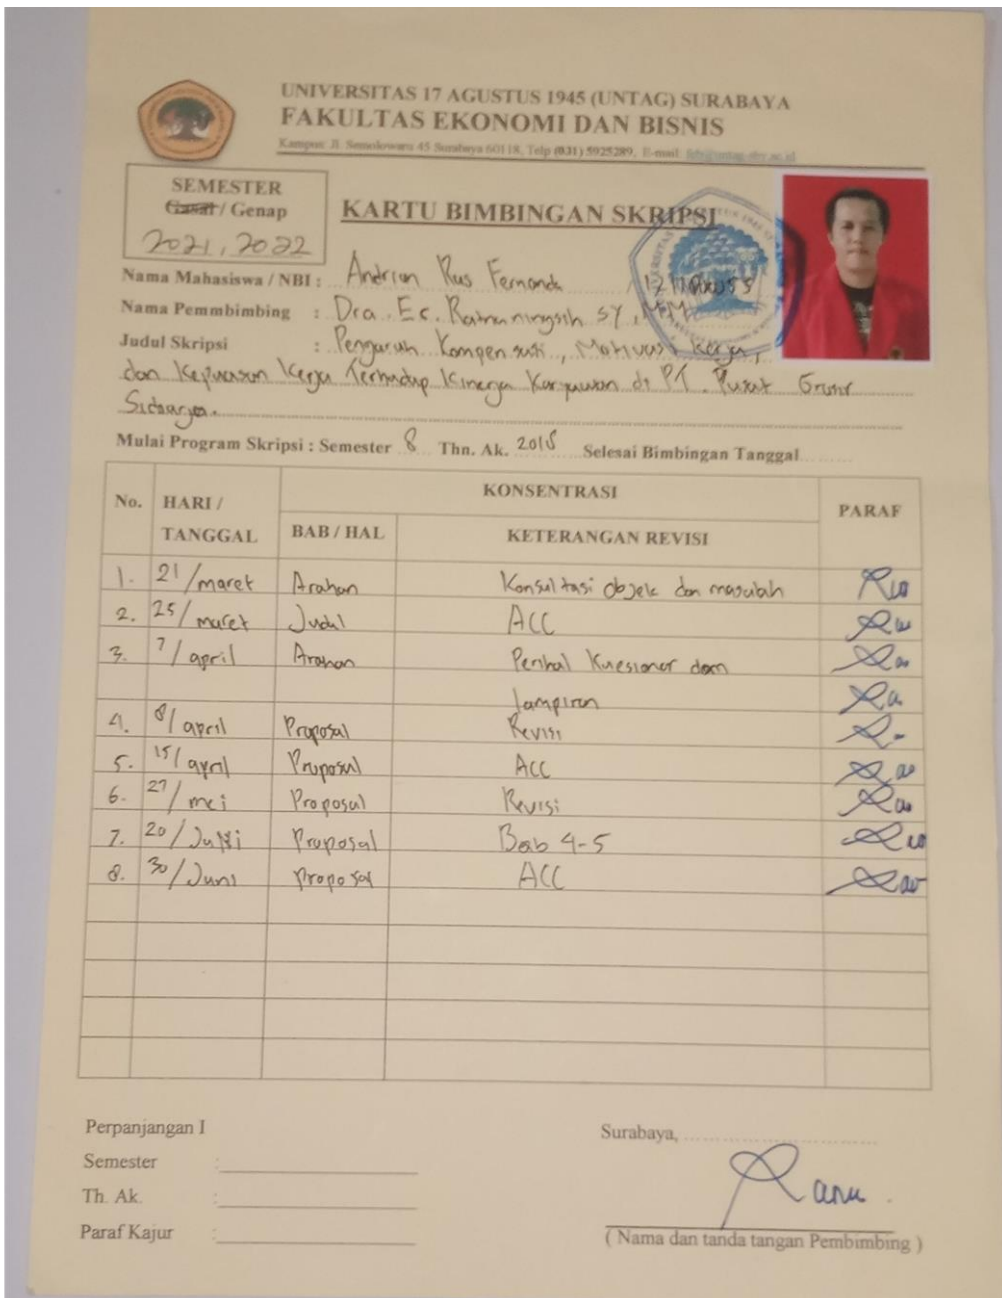 UNIVERSITAS 17 AGUSTUS 1945 (UNTAG) SURABAYA
FAKULTAS EKONOMI DAN BISNIS
Kampus: Jl. Semolowaru 45 Surabaya 60118, Telp (031) 5925289, E-mail:
SEMESTER
Gasal / Genap
2021, 2022
KARTU BIMBINGAN SKRIPSI
Nama Mahasiswa / NBI : Andrian Rus Fernanda
Nama Pemmbimbing : Dra. Ec. Ratnaningsih SY, MM
Judul Skripsi : Pengaruh Kompensasi, Motivasi Kerja,
dan Kepuasan Kerja Terhadap Kinerja Karyawan di PT. Pusat Grosir
Sidoarjo.
Mulai Program Skripsi : Semester 8 Thn. Ak. 2018 Selesai Bimbingan Tanggal
No. HARI / TANGGAL KONSENTRASI PARAF
BAB / HAL KETERANGAN REVISI
1. 21/maret Arahan Konsultasi objek dan masalah
2. 25/maret Judul ACC
3. 7/april Arahan Perihal Kuesioner dan
lampiran
4. 8/april Proposal Revisi
5. 15/april Proposal ACC
6. 27/mei Proposal Revisi
7. 20/Juni Proposal Bab 4-5
8. 30/Juni Proposal ACC
Perpanjangan I
Semester :
Th. Ak. :
Paraf Kajur :
Surabaya,
( Nama dan tanda tangan Pembimbing )